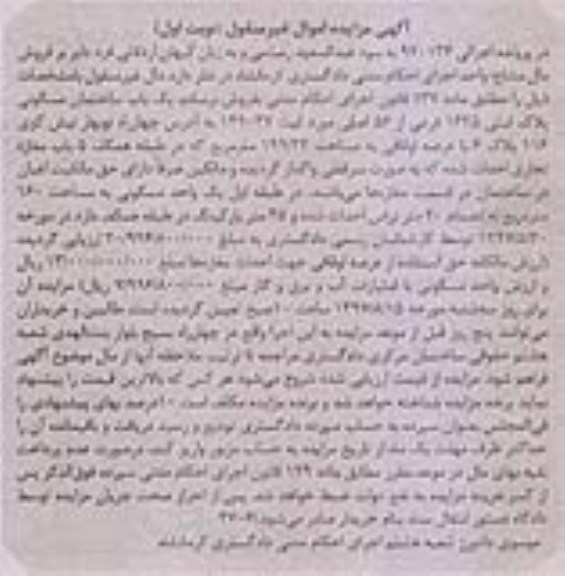 آگهی مزایده اموال غیر منقول (نوبت اول)
در پرونده اجرائی به سید عبدالسعید و به زیان کیهان فره دایر بر فروش
مال مشاع واحد اجرای احکام مدنی دادگستری کرمانشاه در نظر دارد مال غیرمنقول بامشخصات
ذیل را مطابق ماده ۱۳۷ قانون اجرای احکام مدنی بفروش برساند یک باب ساختمان مسکونی
پلاک ثبتی فرعی از اصلی مورد ثبت به آدرس چهارراه نوبهار نبش کوی
۱۱۶ پلاک با عرصه اوقافی به مساحت مترمربع که در طبقه همکف باب مغازه
تجاری احداث شده که به صورت سرقفلی واگذار گردیده و مالکین صرفا دارای حق مالکیت اعیان
در ساختمان در قسمت مغازه‌ها می‌باشند. در طبقه اول یک واحد مسکونی به مساحت ۱۶۰
مترمربع به انضمام ۲۰ متر تراس احداث شده و متر پارکینگ در طبقه همکف دارد در مورخه
توسط کارشناسان رسمی دادگستری به مبلغ ارزیابی گردیده
(ارزش مالکانه حق استفاده از عرصه اوقافی جهت احداث مغازه‌ها مبلغ ریال
و ارزش واحد مسکونی با امتیازات آب و برق و گاز مبلغ ریال) مزایده آن
برای روز سه‌شنبه مورخه ساعت ۱۰صبح تعیین گردیده است. طالبین و خریداران
می‌توانند پنج روز قبل از موعد مزایده به این اجرا واقع در چهارراه بسیج بلوار بنت‌الهدی شعبه
هشتم حقوقی ساختمان مرکزی دادگستری مراجعه تا ترتیب ملاحظه آنها از مال موضوع آگهی
فراهم شود. مزایده از قیمت ارزیابی شده شروع می‌شود هر کس که بالاترین قیمت را پیشنهاد
نماید برنده مزایده شناخته خواهد شد و برنده مزایده مکلف است ۱۰درصد بهای پیشنهادی را
فی‌المجلس بعنوان سپرده به حساب سپرده دادگستری تودیع و رسید دریافت و باقیمانده آن را
حداکثر ظرف مهلت یک ماه از تاریخ مزایده به حساب مزبور واریز کند. درصورت عدم پرداخت
بقیه بهای مال در موعد مقرر مطابق ماده ۱۲۹ قانون اجرای احکام مدنی سپرده فوق‌الذکر پس
از کسر هزینه مزایده به نفع دولت ضبط خواهد شد. پس از احراز صحت جریان مزایده توسط
دادگاه دستور انتقال سند بنام خریدار صادر می‌شود.
موسوی دادورز شعبه هشتم اجرای احکام مدنی دادگستری کرمانشاه